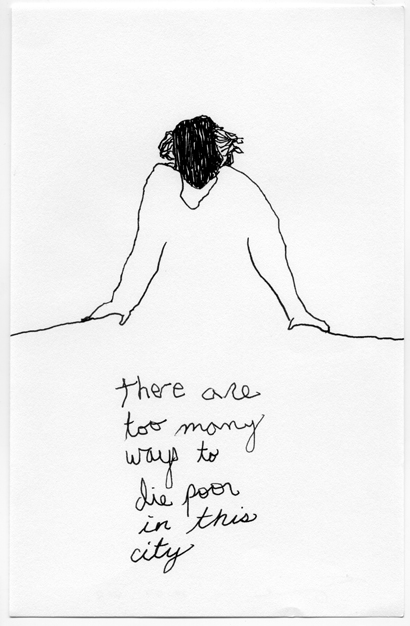 there are
too many
ways to
die poor
in this
city